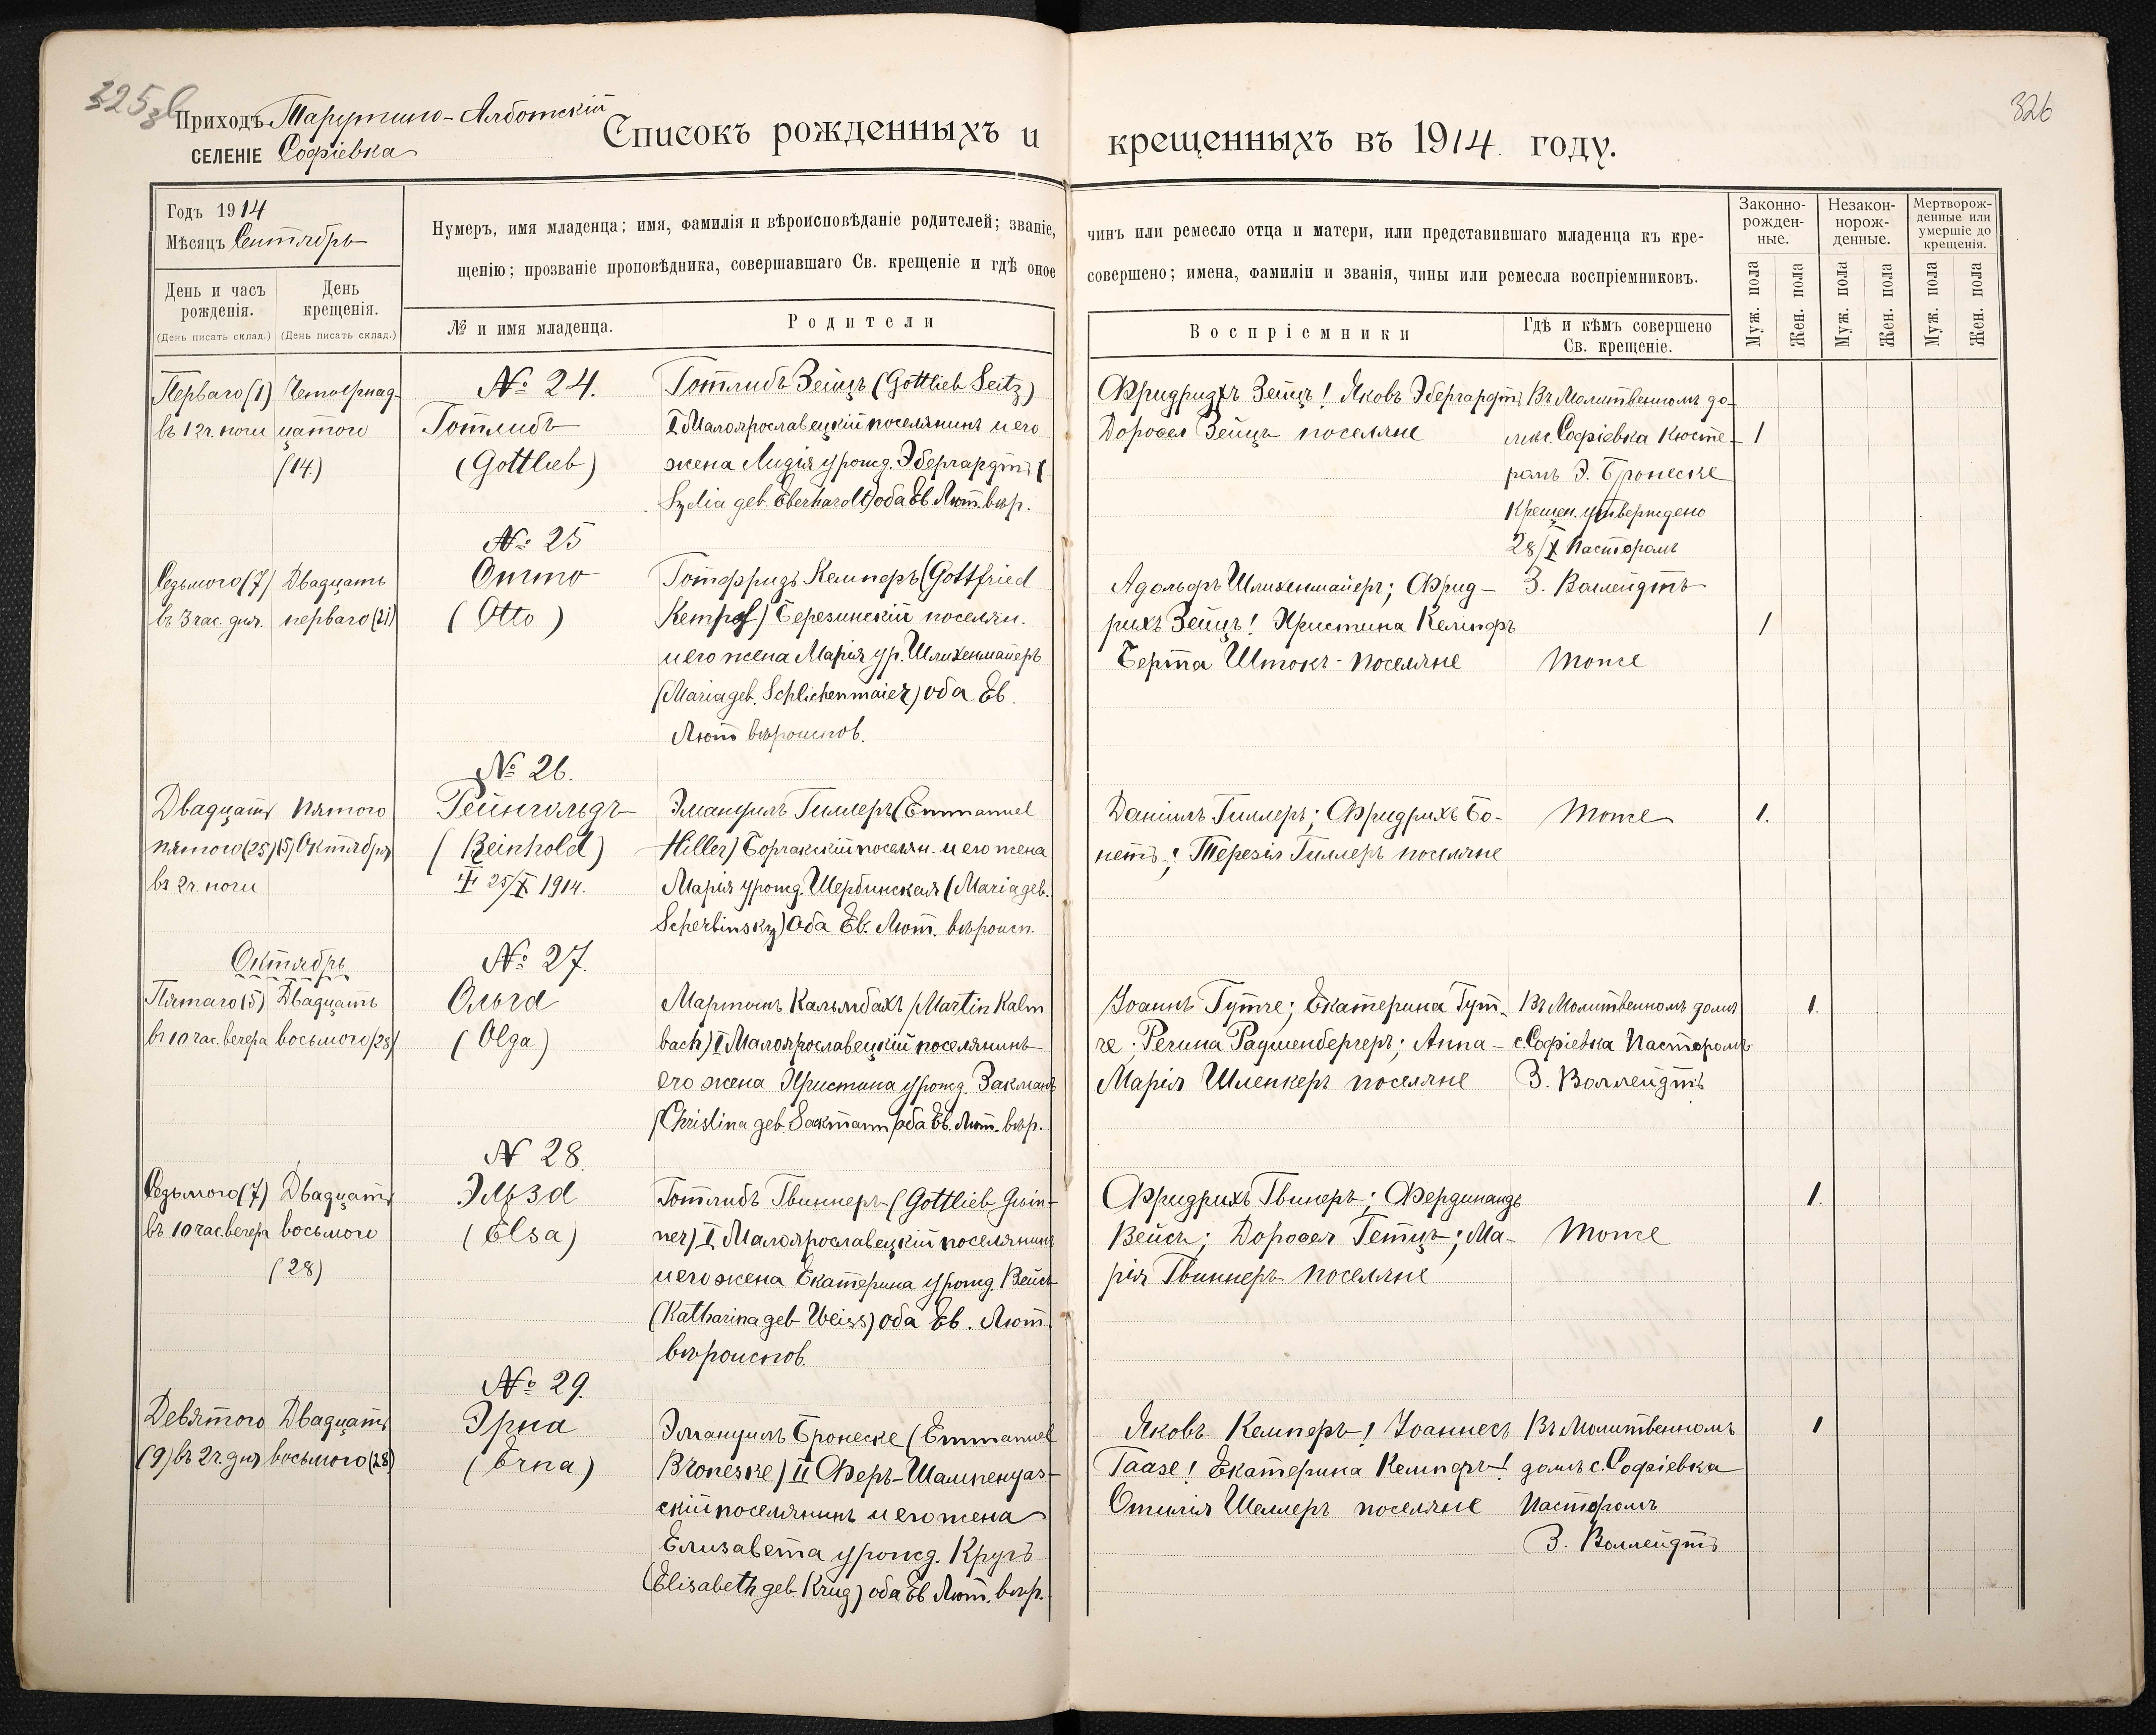 325
326
Приходъ Тарутино-Алботскій
СЕЛЕНІЕ Софіевка
Списокъ рожденныхъ и крещенныхъ въ 1914 году.
Годъ 1914
Мѣсяцъ Сентябрь
День и часъ рожденія.
(День писать склад.)
День крещенія.
(День писать склад.)
Нумеръ, имя младенца; имя, фамилія и вѣроисповѣданіе родителей; званіе, чинъ или ремесло отца и матери, или представившаго младенца къ кре-
щенію; прозваніе проповѣдника, совершавшаго Св. крещеніе и гдѣ оное совершено; имена, фамиліи и званія, чины или ремесла воспріемниковъ.
№ и имя младенца.
Родители
Воспріемники
Гдѣ и кѣмъ совершено
Св. крещеніе.
Законно-
рожден-
ные.
Незакон-
норож-
денные.
Мертворож-
денные или
умершіе до
крещенія.
Муж. пола
Жен. пола
Муж. пола
Жен. пола
Муж. пола
Жен. пола
Перваго (1)
въ 12 ч. ночи
Четырнад-
цатого
(14.)
№ 24.
Готлибъ
(Gottlieb)
Готлибъ Зейцъ (Gottlieb Seitz)
I Малоярославецкій поселянинъ и его
жена Лидія урожд. Эбергардтъ (
Lydia geb. Eberhardt) оба Ев. Лют. вѣр.
Фридрихъ Зейцъ! Яковъ Эбергардтъ
Доровея Зейцъ поселяне
Въ Молитвенномъ до-
мѣ с. Софіевка Кюсте-
ромъ Э. Бронеске
Крещен. утверждено
28/X Пасторомъ
З. Воллейдтъ
1
Седьмого (7)
въ 3 час. дня.
Двадцать
перваго (21)
№ 25
Отто
(Otto)
Готфридъ Кемпфъ (Gottfried
Kempf) Березинскій поселян.
и его жена Марія ур. Шлихенмайеръ
(Maria geb. Schlichenmaier) оба Ев.
Лют вѣроиспов.
Адольфъ Шлихенмайеръ; Фрид-
рихъ Зейцъ! Христина Кемпфъ
Берта Штокъ - поселяне
Тоже
1
Двадцать
пятого (25)
въ 2 ч. ночи
Пятого
(5) Октября
№ 26.
Рейнгольдъ
(Reinhold)
‡ 25/X 1914.
Эмануилъ Гиллеръ (Emmanuel
Hiller) Боргакскій поселян. и его жена
Марія урожд. Шербинская (Maria geb.
Scherbinsky) Оба Ев. Лют. вѣроисп.
Даніилъ Гиллеръ; Фридрихъ Бо-
нетъ; Терезія Гиллеръ поселяне
Тоже
1.
Октябрь
Пятаго (5)
въ 10 час. вечера
Двадцать
восьмого (28)
№ 27.
Ольга
(Olga)
Мартинъ Кальмбахъ (Martin Kalm
bach) I Малоярославецкій поселянинъ
его жена Христина урожд. Закманъ
(Christina geb. Sackmann) оба Ев. Лют. вѣр.
Іоаннъ Гутче; Екатерина Гут-
че; Регина Раушенбергеръ; Анна-
Марія Шленкеръ поселяне
Въ Молитвенномъ домѣ
с. Софіевка Пасторомъ
З. Воллейдтъ
1.
Седьмого (7)
въ 10 час. вечера
Двадцать
восьмого
(28)
N 28.
Эльза
(Elsa)
Готлибъ Гвиннеръ (Gottlieb Gwin-
ner) I Малоярославецкій поселянинъ
и его жена Екатерина урожд. Вейсъ
(Katharina geb Weiss) оба Ев. Лют.
вѣроиспов.
Фридрихъ Гвинеръ; Фердинандъ
Вейсъ; Доровея Гетцъ; Ма-
рія Гвиннеръ поселяне
Тоже
1.
Девятого
(9) въ 2 ч. дня
Двадцать
восьмого (28)
№ 29.
Эрна
(Erna)
Эммануилъ Бронеске (Emmanuel
Broneske) II Феръ-Шампенуаз-
скій поселянинъ и его жена
Елизавета урожд. Кругъ
(Elisabeth geb. Krug) оба Ев Лют. вѣр.
Яковъ Кемперъ! Іоаннесъ
Гаазе! Екатерина Кемперъ!
Отилія Шеллеръ поселяне
Въ Молитвенномъ
домѣ с. Софіевка
Пасторомъ
З. Воллейдтъ
1